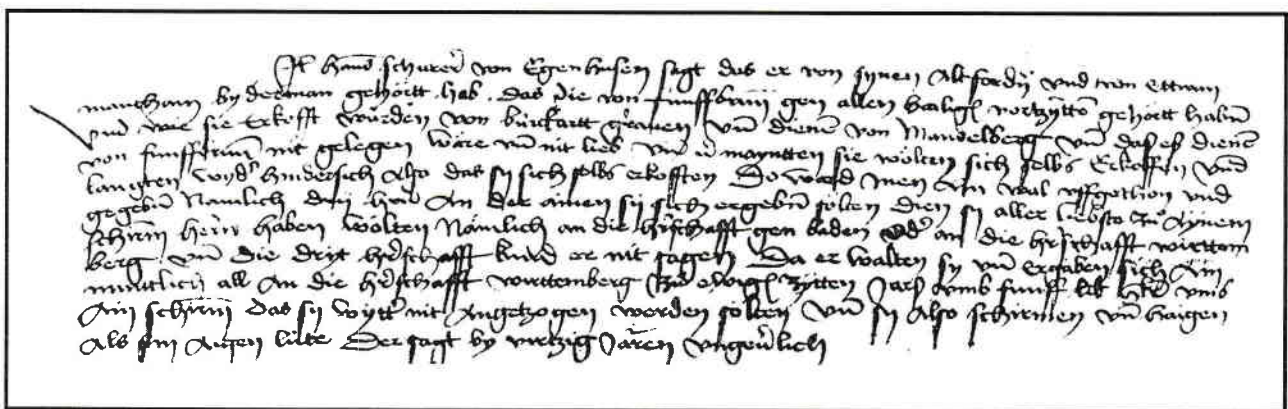 It hans schurer von Egenhusen sagt das er von synen altfordern und von ettwan
manchem byderman gehörtt hab das die von funffbrun gen allen hailgen vortzytten gehört habn
und wie sie erkofft würden von burckartt von Mandelberg und das es dienen
von funffbrun nit gelegen wäre und nit lieb und maynten sie wölten sich selbs erkoffen und
langten wyder hindersich also das sy sich selbs erkofften Do ward inen ein wal uffgethon und
gegebn Namlich dry hern An der ainen sy sich ergebn sölten dien sy aller liebsto zu Aynem
schirm hern haben wölten Nämlich an die herschafft gen baden oder an die herschafft wirttem
berg und die dryt herschafft kund er nit sagen Da er walten sy und ergaben sich ain
muttlich all an die herschafft wirttemberg zu ewigen zytten Jars umb funff lib umb
Ain schirm das sy wytter nit angetzogen werden sölten und sy also schirmen und haigen
als sin aigen lüte Der sagt by virtzig Jaren ungeverlich